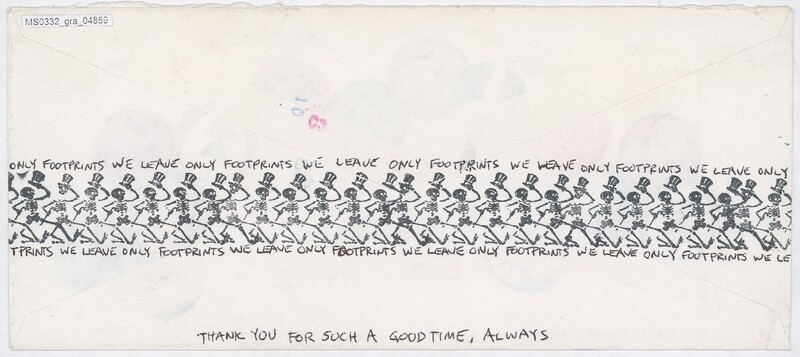 MS0332_gra_04859
ONLY FOOTPRINTS WE LEAVE ONLY FOOTPRINTS WE LEAVE ONLY FOOTPRINTS WE LEAVE ONLY FOOTPRINTS WE LEAVE ONLY
TPRINTS WE LEAVE ONLY FOOTPRINTS WE LEAVE ONLY FOOTPRINTS WE LEAVE ONLY FOOTPRINTS WE LEAVE ONLY FOOTPRINTS WE LE
THANK YOU FOR SUCH A GOOD TIME, ALWAYS